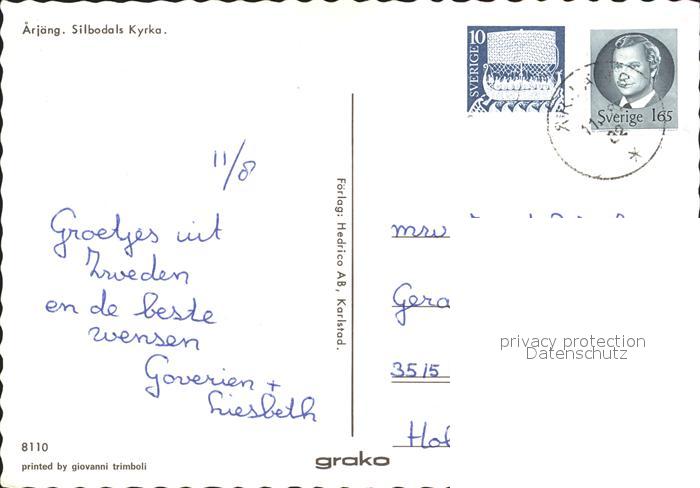 Årjäng. Silbodals Kyrka.
10
SVERIGE
Sverige 165
11/8
Groetjes uit
Zweden
en de beste
wensen
Goverien +
Liesbeth
Förlag: Hedrico AB, Karlstad.
mrw
Gera
3515
Hol
privacy protection
Datenschutz
8110
printed by giovanni trimboli
grako